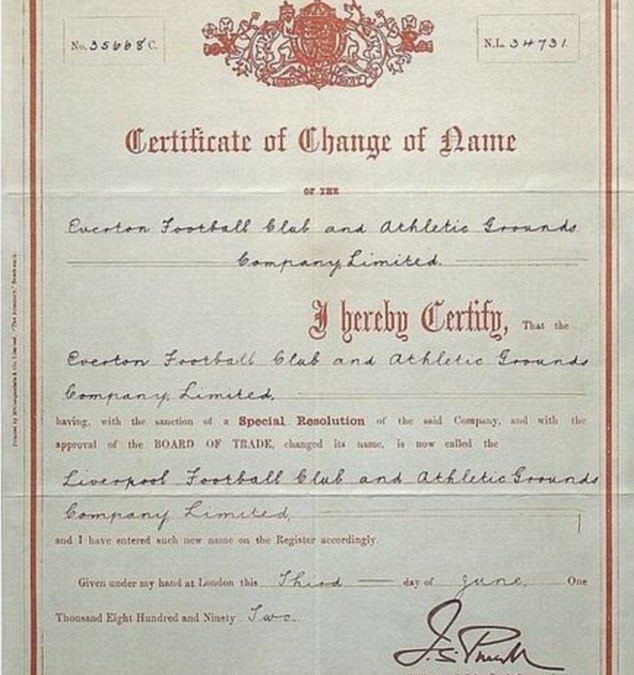 No. 35668 C.
N.L. 34731.
Certificate of Change of Name
OF THE
Everton Football Club and Athletic Grounds
Company, Limited.
I hereby Certify, That the
Everton Football Club and Athletic Grounds
Company, Limited,
having, with the sanction of a Special Resolution of the said Company, and with the
approval of the BOARD OF TRADE, changed its name, is now called the
Liverpool Football Club and Athletic Grounds
Company Limited,
and I have entered such new name on the Register accordingly.
Given under my hand at London this Third day of June, One
Thousand Eight Hundred and Ninety Two.
J.S.